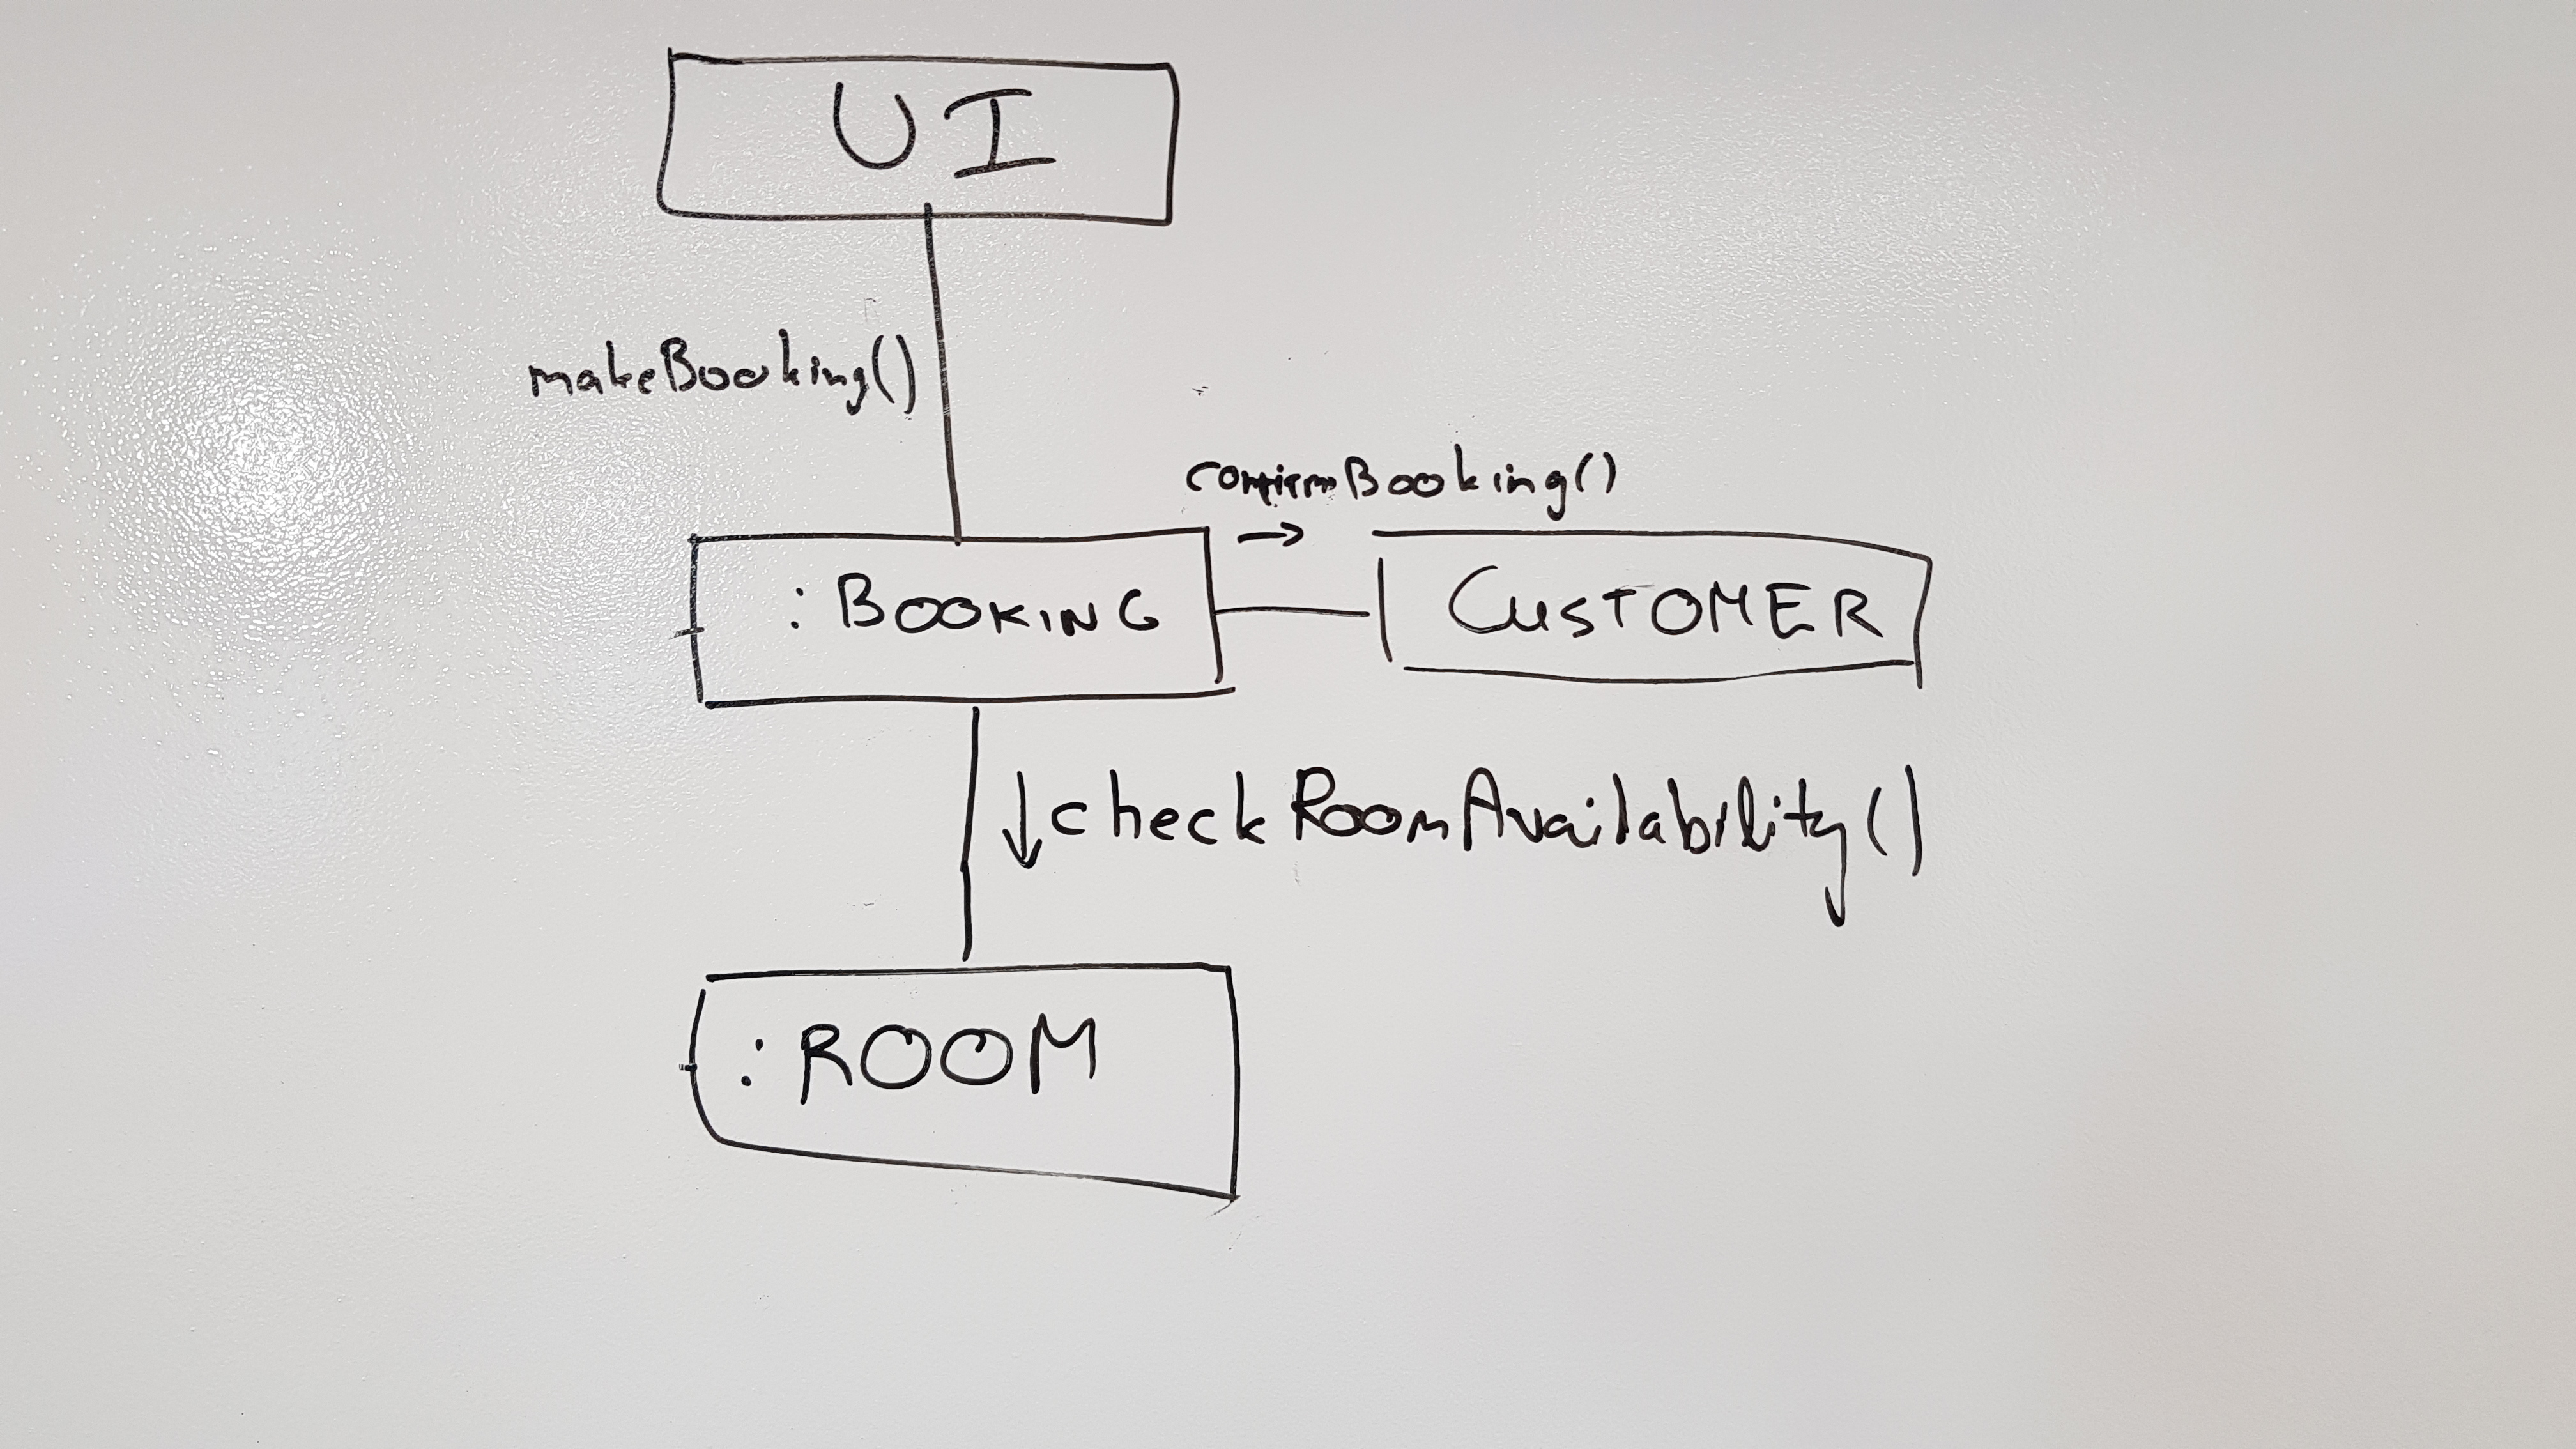 UI
makeBooking()
confirmBooking()
: BOOKING
CUSTOMER
checkRoomAvailability()
: ROOM